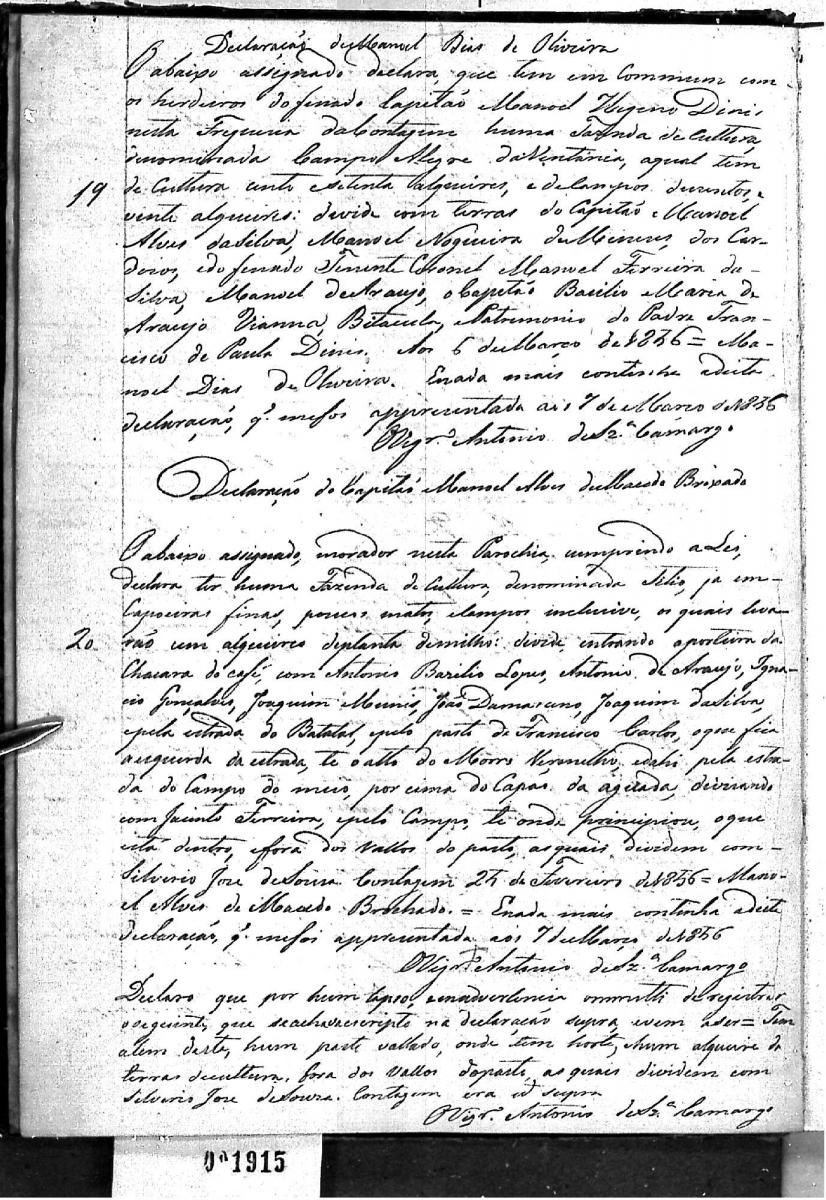 Declaração de Manoel Dias de Oliveira
O abaixo assignado declara, que tem em Commum com
os herdeiros do finado Capitão Manoel Higeno Dinis
nesta Freguezia da Contagem huma Fazenda de Cultura
denominada Campo Alegre da Ventania, a qual tem
19
de Cultura cento e setenta alqueires, e de Campos duzentos e
vente alqueires: divide com terras do Capitão Manoel
Alves da Silva, Manoel Nogueira de Menezes, dos Car-
dozos, e do finado Tenente Coronel Manoel Ferreira da
Silva, Manoel de Araujo, o Capitão Basilio Maria de
Araujo Vianna, Bitacula, e Patrimonio do Padre Fran-
cisco de Paula Dinis. Aos 6 de Março de 1856 = Ma-
noel Dias de Oliveira. E nada mais continha a dicta
declaração, q.^e me foi appresentada aos 7 de Março de 1856
O Vigr.^o Antonio de Sz.^a Camargo
Declaração do Capitão Manoel Alves de Macedo Broxado
O abaixo assignado, morador nesta Parochia, cumprindo a Lei,
declara ter huma Fazenda de Cultura, denominada Sitio, já em
Capoeiras finas, poucos matos, e Campos inclusive, os quais leva-
20
rão cem alqueires de planta de milho: divide, entrando a porteira da
Chacara do café, com Antonio Bazilio Lopes, Antonio de Araujo, Igna-
cio Gonçalves, Joaquim Munis, João Damasceno, Joaquim da Silva,
e pela estrada do Batatal, e pelo pasto de Francisco Carlos, o que fica
a esquerda da estrada, te o alto do Morro Vermelho, e dahi pela estra-
da do Campo do meio, por cima do Capão da agoada, divizando
com Jacinto Ferreira, e pelo Campo, te onde principiou, o que
está dentro, e fora dos Vallos do pasto, as quais dividem com
Silverio Jose de Souza Contagem 25 de Fevereiro de 1856 = Mano-
el Alves de Macedo Brochado. = E nada mais continha a dicta
declaração, q.^e me foi appresentada aos 7 de Março de 1856
O Vigr.^o Antonio de Sz.^a Camargo
Declaro que por hum lapso, e inadvertencia ommitti de registrar
o seguinte, que se acha escripto na declaração supra, e vem a ser = Tem
alem desta, hum pasto vallado, onde tem horta, e hum alqueire de
terras de cultura, fora dos Vallos do pasto, as quais dividem com
Silverio Jose de Souza. Contagem era ut supra
O Vigr.^o Antonio de Sz.^a Camargo
1915